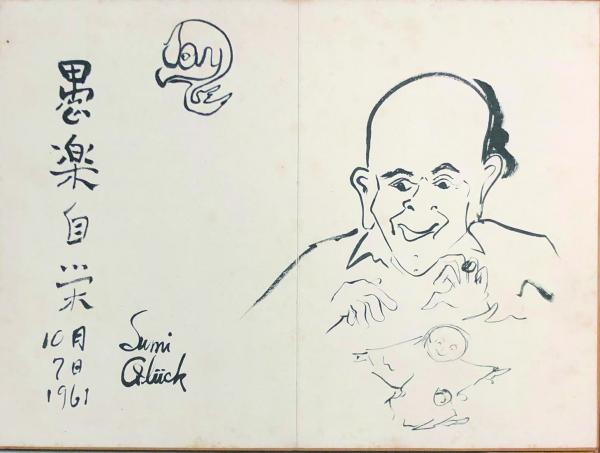 愚楽自栄
10月
7日
1961
Sumi
Glück